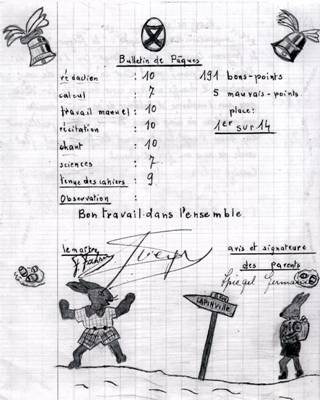 Bulletin de Pâques
rédaction : 10
calcul : 7
travail manuel : 10
récitation : 10
chant : 10
sciences : 7
tenue des cahiers : 9
Observation :
191 bons-points
5 mauvais-points
place:
1er sur 14
Bon travail dans l'ensemble
le maître
avis et signature
des parents
Spiegel Germaine
LAPINVILLE